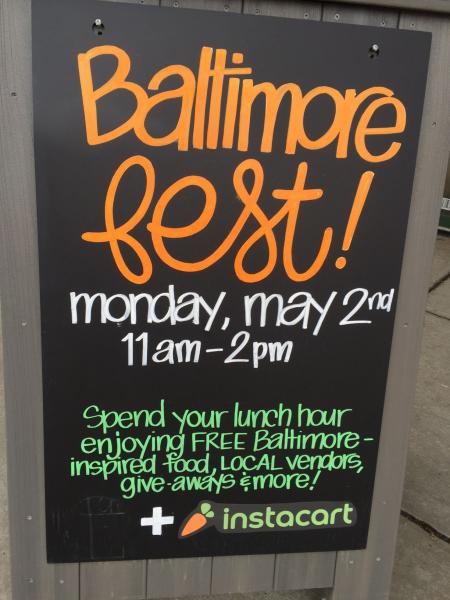 Baltimore
fest!
monday, may 2nd
11am-2pm
Spend your lunch hour
enjoying FREE Baltimore-
inspired food, LOCAL vendors,
give-aways & more!
+ instacart